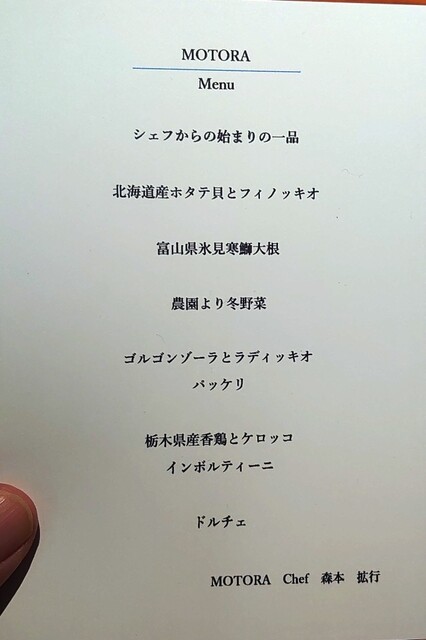 MOTORA
Menu
シェフからの始まりの一品
北海道産ホタテ貝とフィノッキオ
富山県氷見寒鰤大根
農園より冬野菜
ゴルゴンゾーラとラディッキオ
パッケリ
栃木県産香鶏とケロッコ
インボルティーニ
ドルチェ
MOTORA Chef 森本 拡行